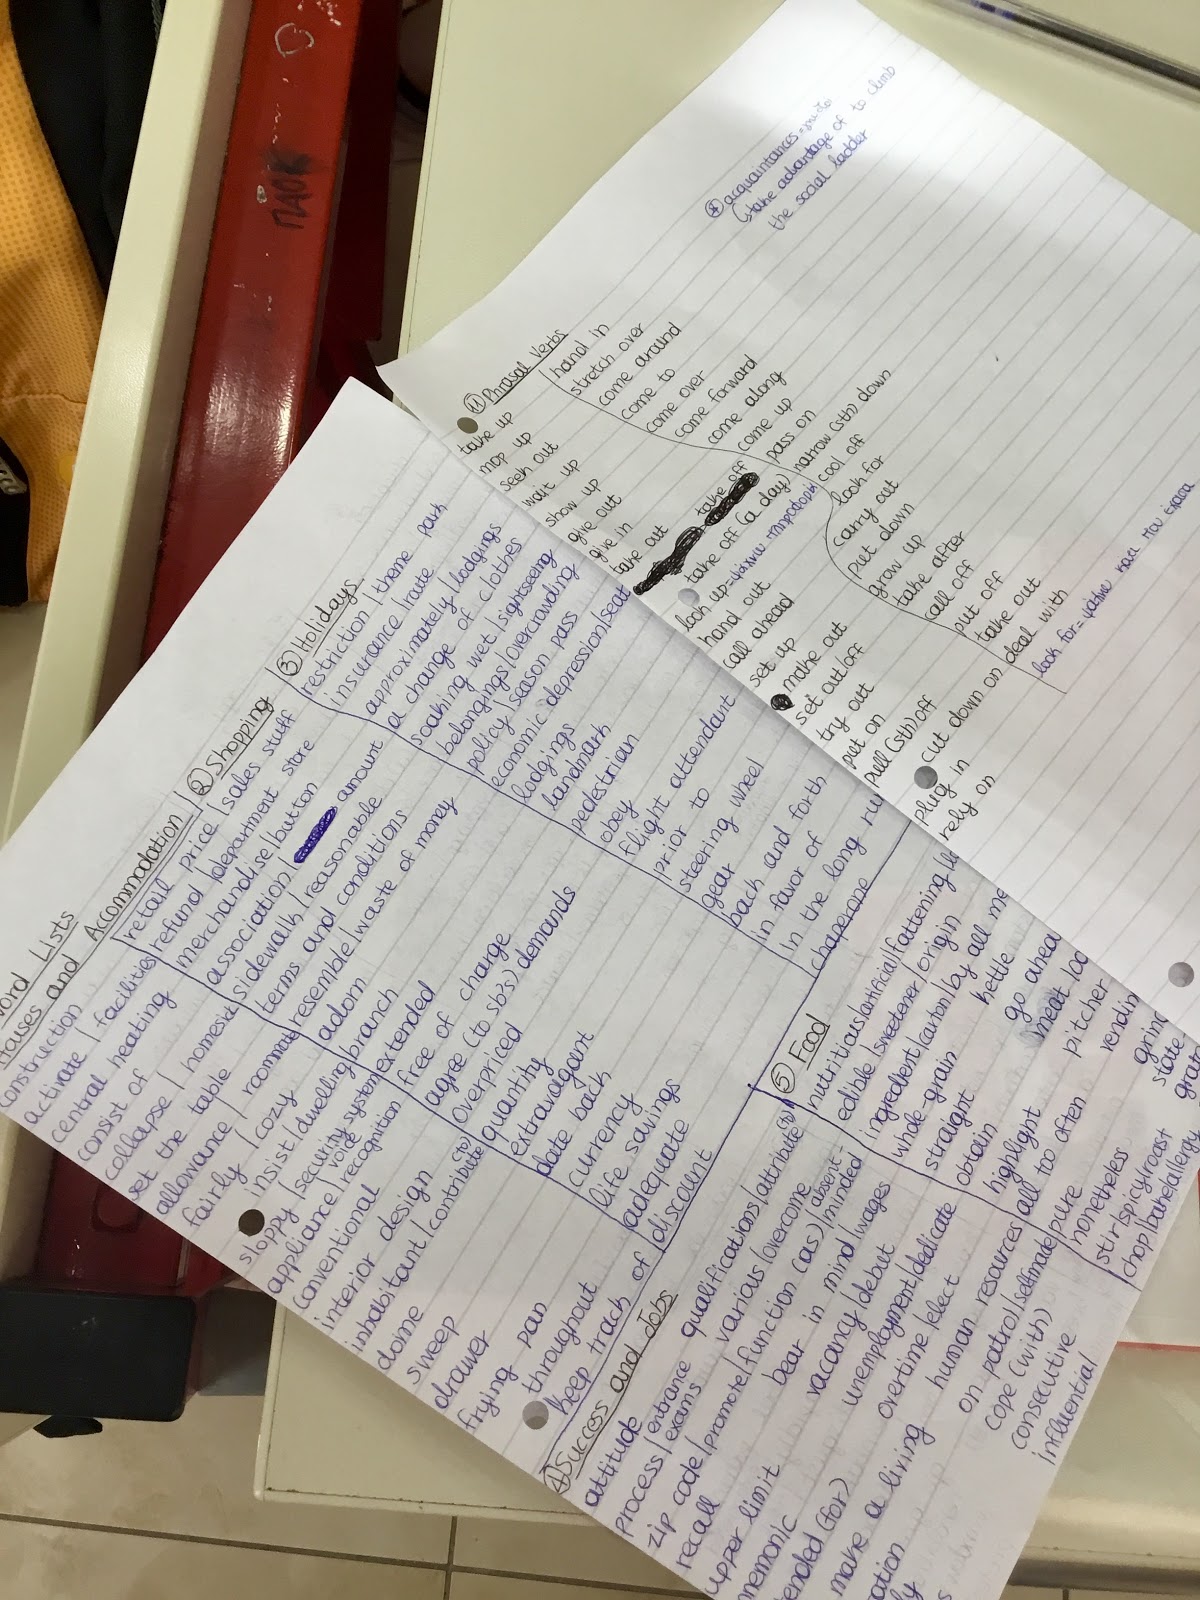 ΠΑΟΚ
Word Lists
Houses and Accommodation
construction
activate / facilities
central heating
consist of
collapse / homesick
set the table
allowance / roommate
fairly / cozy
insist / dwelling
sloppy / security system
appliance / voice recognition
conventional
interior design
inhabitant / contribute (to)
dome
sweep
drawer
frying pan
throughout
keep track of
② Shopping
retail price / sales stuff
refund / department store
merchandise / button
association / amount
sidewalk / reasonable
terms and conditions
resemble / waste of money
adorn
branch
extended
free of charge
agree (to sb's) demands
overpriced
quantity
extravagant
date back
currency
life savings
adequate
discount
③ Holidays
restriction / theme park
insurance / rate
approximately / lodgings
a change of clothes
soaking wet / sightseeing
belongings / overcrowding
policy / season pass
economic depression / seat
lodgings
landmark
pedestrian
obey
flight attendant
prior to
steering wheel
gear
back and forth
in favor of
in the long ru
chaperone
④ Success and Jobs
attitude
process / entrance exams
zip code / promote / function (as)
recall
upper limit
mnemonic
make a living
qualifications / attribute (to)
various / overcome
absent-minded
bear in mind / wages
vacancy / debut
unemployment / dedicate
overtime / elect
human resources
on patrol / selfmade
cope (with)
consecutive
influential
⑤ Food
nutritious / artificial / fattening
edible / sweetener / origin
ingredient / carton / by all me
whole-grain
kettle
straight
obtain
go ahea
highlight
meat loa
all too often
pitcher
pure
vendin
nonetheless
stir / spicy / roast
chop / bake / allergy
grin
state
grat
⑪ Phrasal Verbs
take up
mop up
seek out
wait up
show up
give out
give in
take out
take off
take off (a day)
look up =
hand out
call ahead
set up
make out
set out/off
try out
put on
pull (sth) off
cut down on
plug in
rely on
hand in
stretch over
come around
come to
come over
come forward
come along
come up
pass on
narrow (sth) down
cool off
look for
carry out
put down
grow up
take after
call off
put off
take out
deal with
look for = ψάχνω κάτι που έχασα
acquaintances =
take advantage of to climb
the social ladder